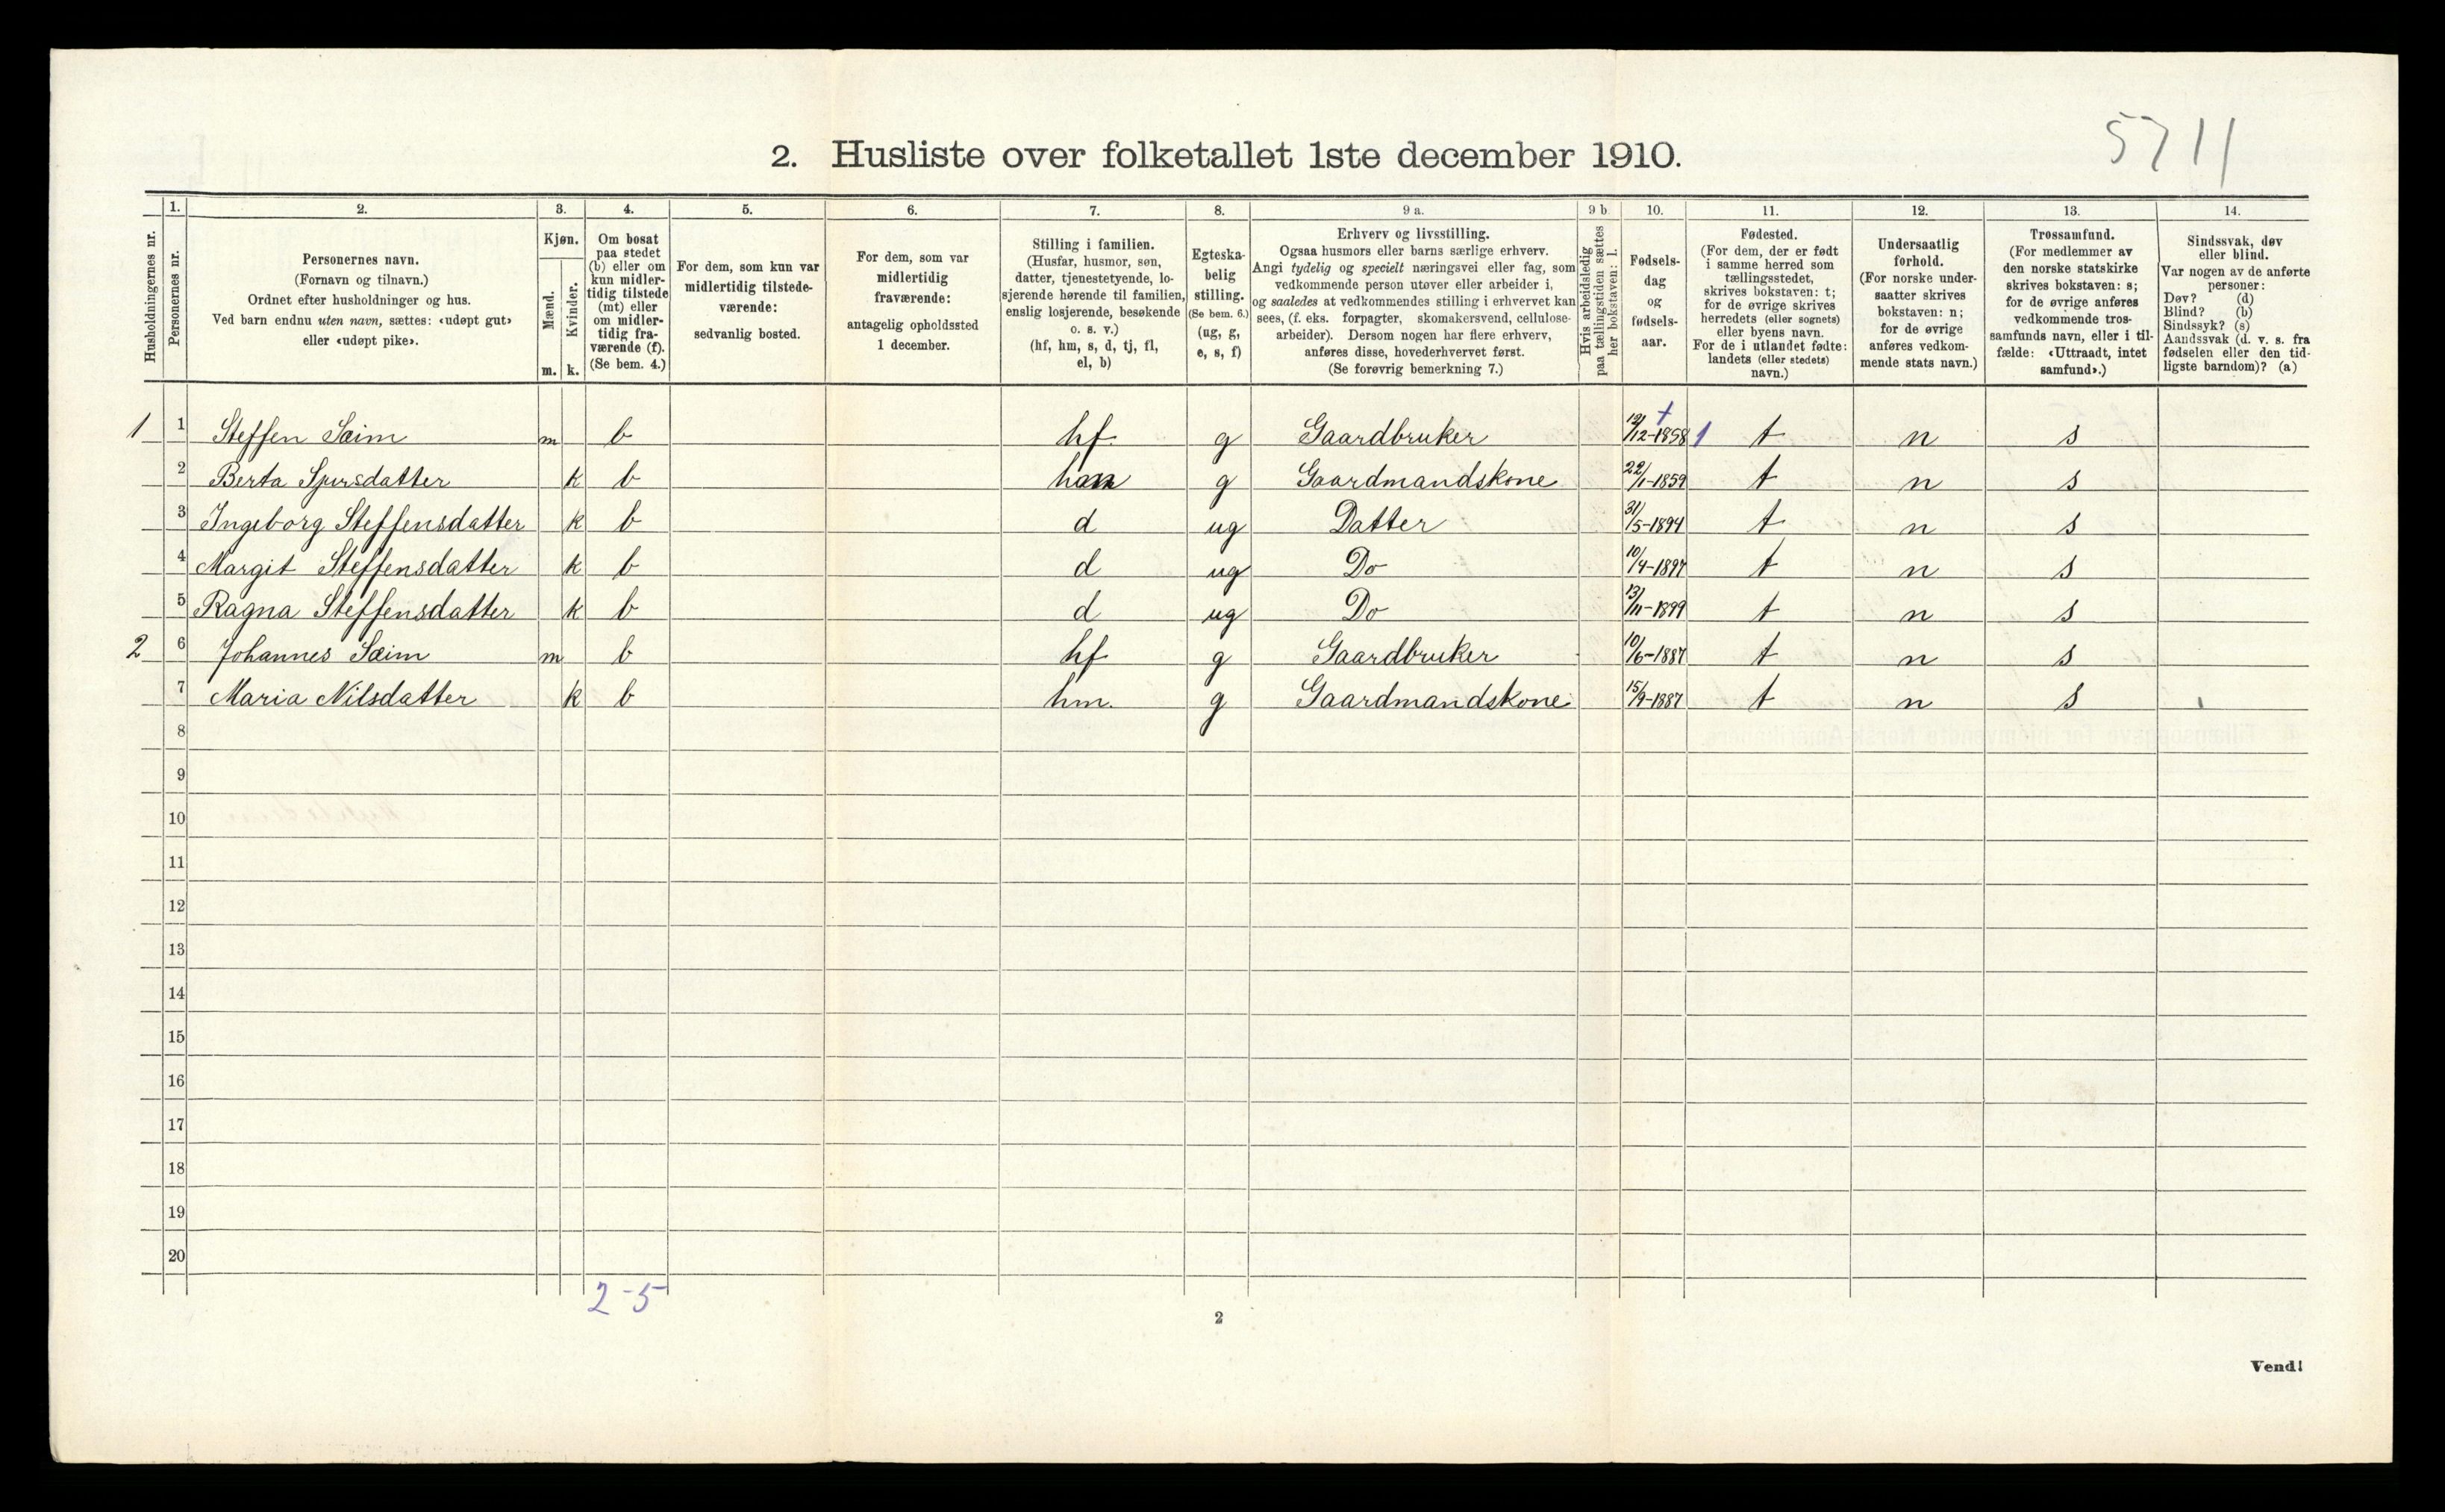 5711
2. Husliste over folketallet 1ste december 1910.
Husholdningernes nr.
1.
Personernes nr.
2.
Personernes navn.
(Fornavn og tilnavn.)
Ordnet efter husholdninger og hus.
Ved barn endnu uten navn, sættes: «udøpt gut»
eller «udøpt pike».
3.
Kjøn.
Mænd.
m.
Kvinder.
k.
4.
Om bosat
paa stedet
(b) eller om
kun midler-
tidig tilstede
(mt) eller
om midler-
tidig fra-
værende (f).
(Se bem. 4.)
5.
For dem, som kun var
midlertidig tilstede-
værende:
sedvanlig bosted.
6.
For dem, som var
midlertidig
fraværende:
antagelig opholdssted
1 december.
7.
Stilling i familien.
(Husfar, husmor, søn,
datter, tjenestetyende, lo-
sjerende hørende til familien,
enslig losjerende, besøkende
o. s. v.)
(hf, hm, s, d, tj, fl,
el, b)
8.
Egteska-
belig
stilling.
(Se bem. 6.)
(ug, g,
e, s, f)
9 a.
Erhverv og livsstilling.
Ogsaa husmors eller barns særlige erhverv.
Angi tydelig og specielt næringsvei eller fag, som
vedkommende person utøver eller arbeider i,
og saaledes at vedkommendes stilling i erhvervet kan
sees, (f. eks. forpagter, skomakersvend, cellulose-
arbeider). Dersom nogen har flere erhverv,
anføres disse, hovederhvervet først.
(Se forøvrig bemerkning 7.)
9 b
Hvis arbeidsledig
paa tællingstiden sættes
her bokstaven: l.
10.
Fødsels-
dag
og
fødsels-
aar.
11.
Fødested.
(For dem, der er født
i samme herred som
tællingsstedet,
skrives bokstaven: t;
for de øvrige skrives
herredets (eller sognets)
eller byens navn.
For de i utlandet fødte:
landets (eller stedets)
navn.)
12.
Undersaatlig
forhold.
(For norske under-
saatter skrives
bokstaven: n;
for de øvrige
anføres vedkom-
mende stats navn.)
13.
Trossamfund.
(For medlemmer av
den norske statskirke
skrives bokstaven: s;
for de øvrige anføres
vedkommende tros-
samfunds navn, eller i til-
fælde: «Uttraadt, intet
samfund».)
14.
Sindssvak, døv
eller blind.
Var nogen av de anførte
personer:
Døv? (d)
Blind? (b)
Sindssyk? (s)
Aandssvak (d. v. s. fra
fødselen eller den tid-
ligste barndom)? (a)
1 1 Steffen Sæim m b hf g Gaardbruker /12-1858 1 t n s
2 Berta Sjursdatter k b g Gaardmandskone 22/1-1859 t n s
3 Ingeborg Steffensdatter k b d ug Datter 31/5-1894 t n s
4 Margit Steffensdatter k b d ug Do 10/4-1897 t n s
5 Ragna Steffensdatter k b d ug Do 13/11-1899 t n s
2 6 Johannes Sæim m b hf g Gaardbruker 10/6-1887 t n s
7 Maria Nilsdatter k b hm. g Gaardmandskone 15/9-1887 t n s
8
9
10
11
12
13
14
15
16
17
18
19
20
2-5
2
Vend!